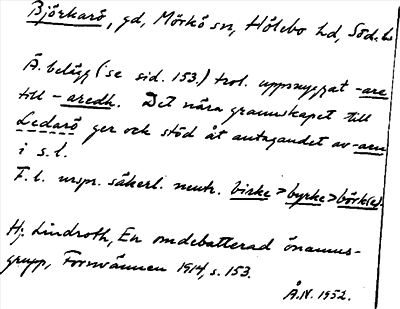 Björkarö, gd, Mörkö sn, Hölebo hd, Söd. l.
Ä. belägg (se sid. 153.) trol. uppsnyggat -are
till -aredh. Det nära grannskapet till
Ledarö ger ock stöd åt antagandet av -aren
i s.l.
F.l. urspr. säkerl. neutr. birke > byrke > börk(e).
Hj. Lindroth, En omdebatterad önamns-
grupp, Fornvännen 1914, s. 153.
Å.N. 1952.